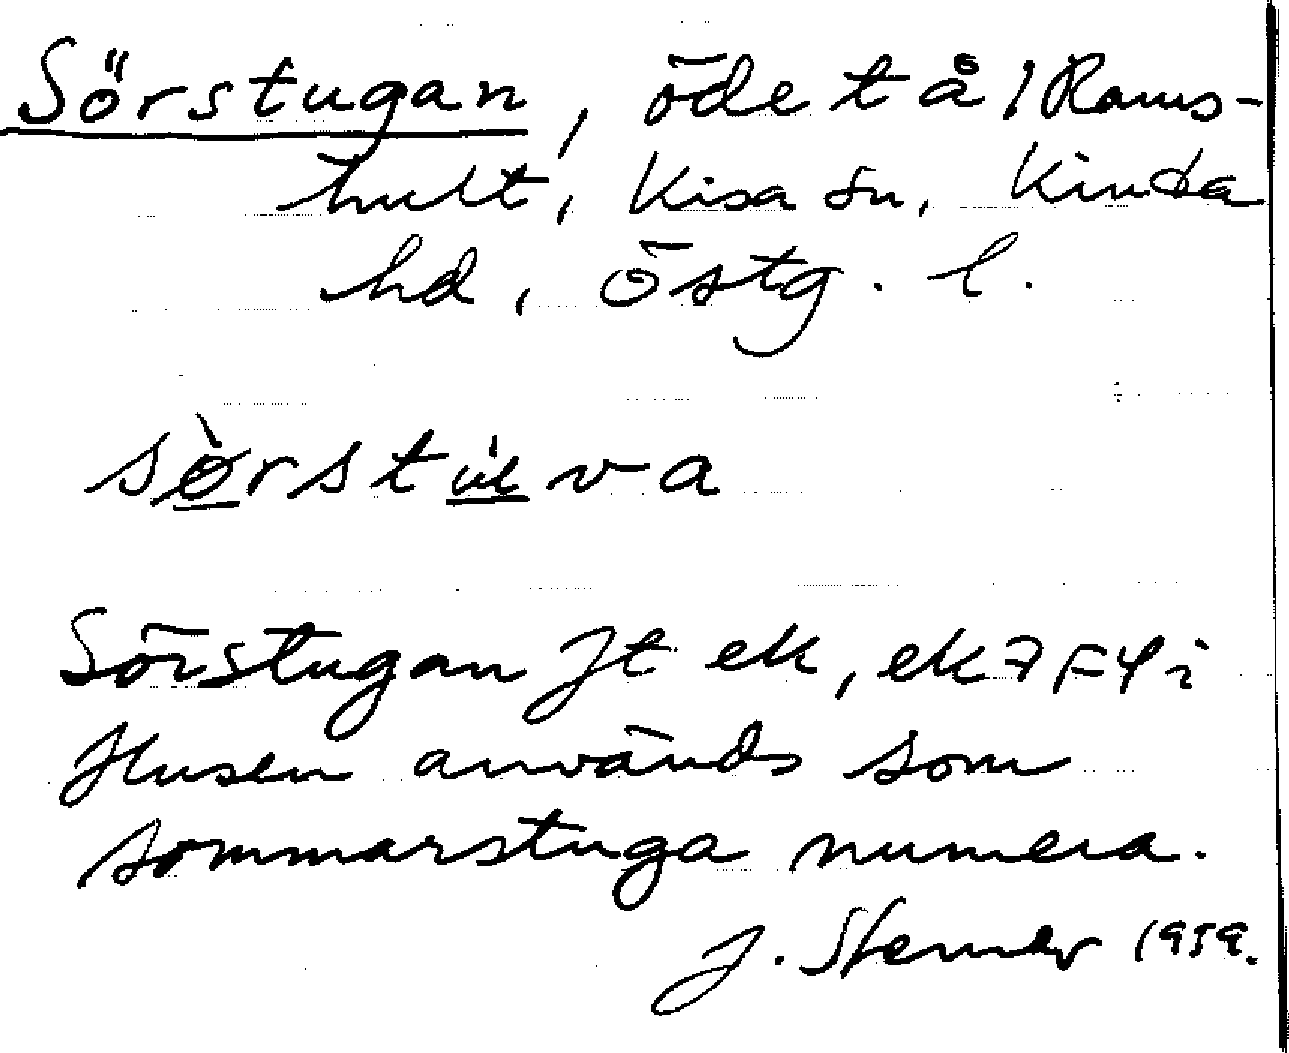 Sörstugan, öde t å / Rams-
hult, Kisa sn, Kinda
hd, Östg. l.
sø̀rstúva
Sörstugan Jt ek, ek 7 F 4 i
Husen används som
sommarstuga numera.
J. Sterner 1959.